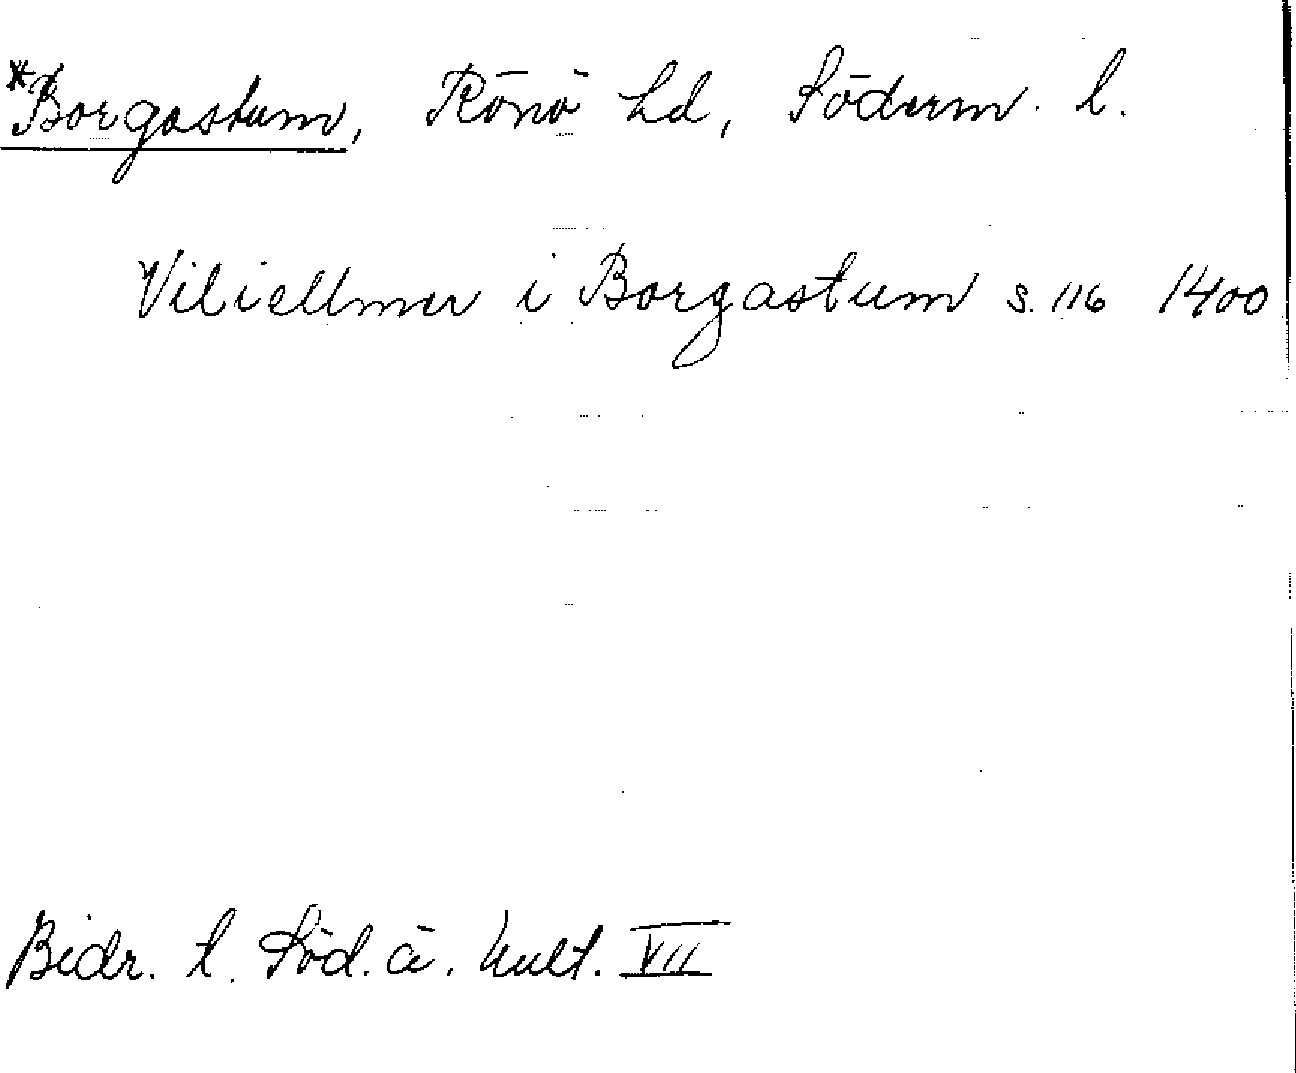 *Borgastum, Rönö hd, Söderm. l.
Viliellmer i Borgastum s. 116 1400
Bidr. t. Söd. ä. kult. VII